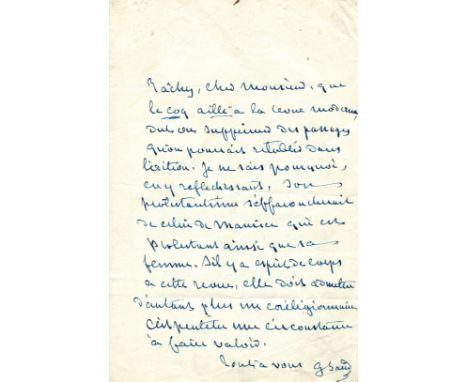 Tachez, cher Monsieur, que
le coq aille a la revue moderne,
dut on supprimer des passages
qu'on pourrait rétablir dans
l'édition. Je ne sais pourquoi,
en y reflechissant, son
protestantisme s'effaroucherait
de celui de Maurice qui est
protestant ainsi que sa
femme. S'il y a esprit de corps
a cette revue, elle doit admettre
d'autant plus un coréligionnaire,
c'est peutetre une circonstance
à faire valoir.
Tout à vous G Sand